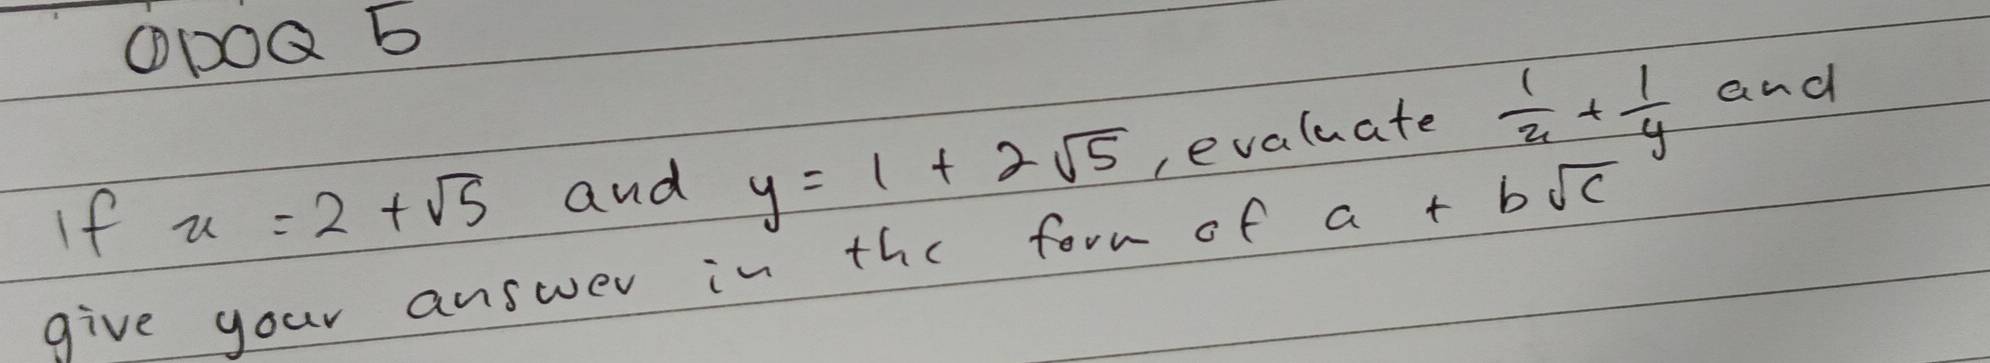 ODOQ 5
If x = 2 + √5 and y = 1 + 2√5, evaluate 1/x + 1/y and
give your answer in the form of a + b√c